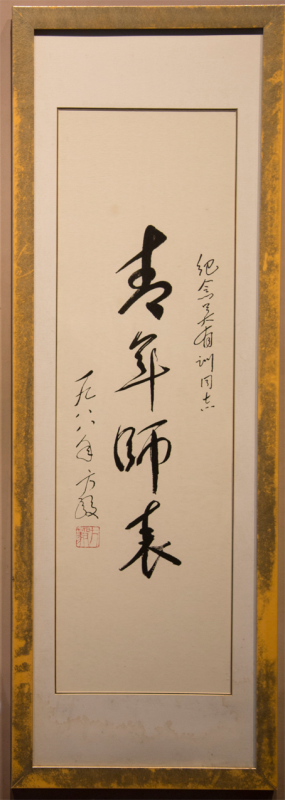 纪念吴有训同志
青年師表
一九八八年 方毅